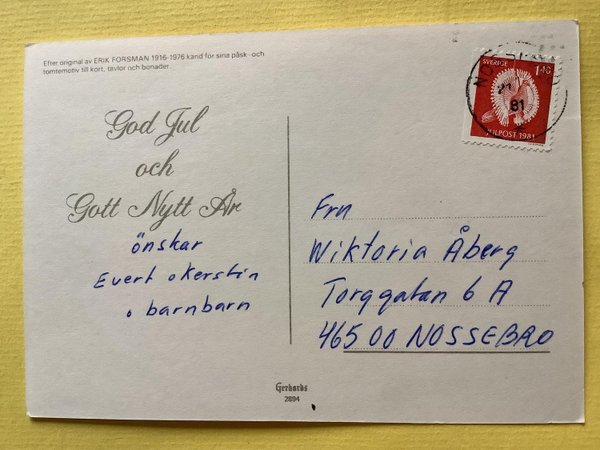 Efter original av ERIK FORSMAN 1916-1976 känd för sina påsk- och
tomtemotiv till kort, tavlor och bonader.
SVERIGE 1.40
JULPOST 1981
81
God Jul
och
Gott Nytt År
önskar
Evert o Kerstin
o barnbarn
Frn
Wiktoria Åberg
Torggatan 6 A
465 00 NOSSEBRO
Gerhards
2894